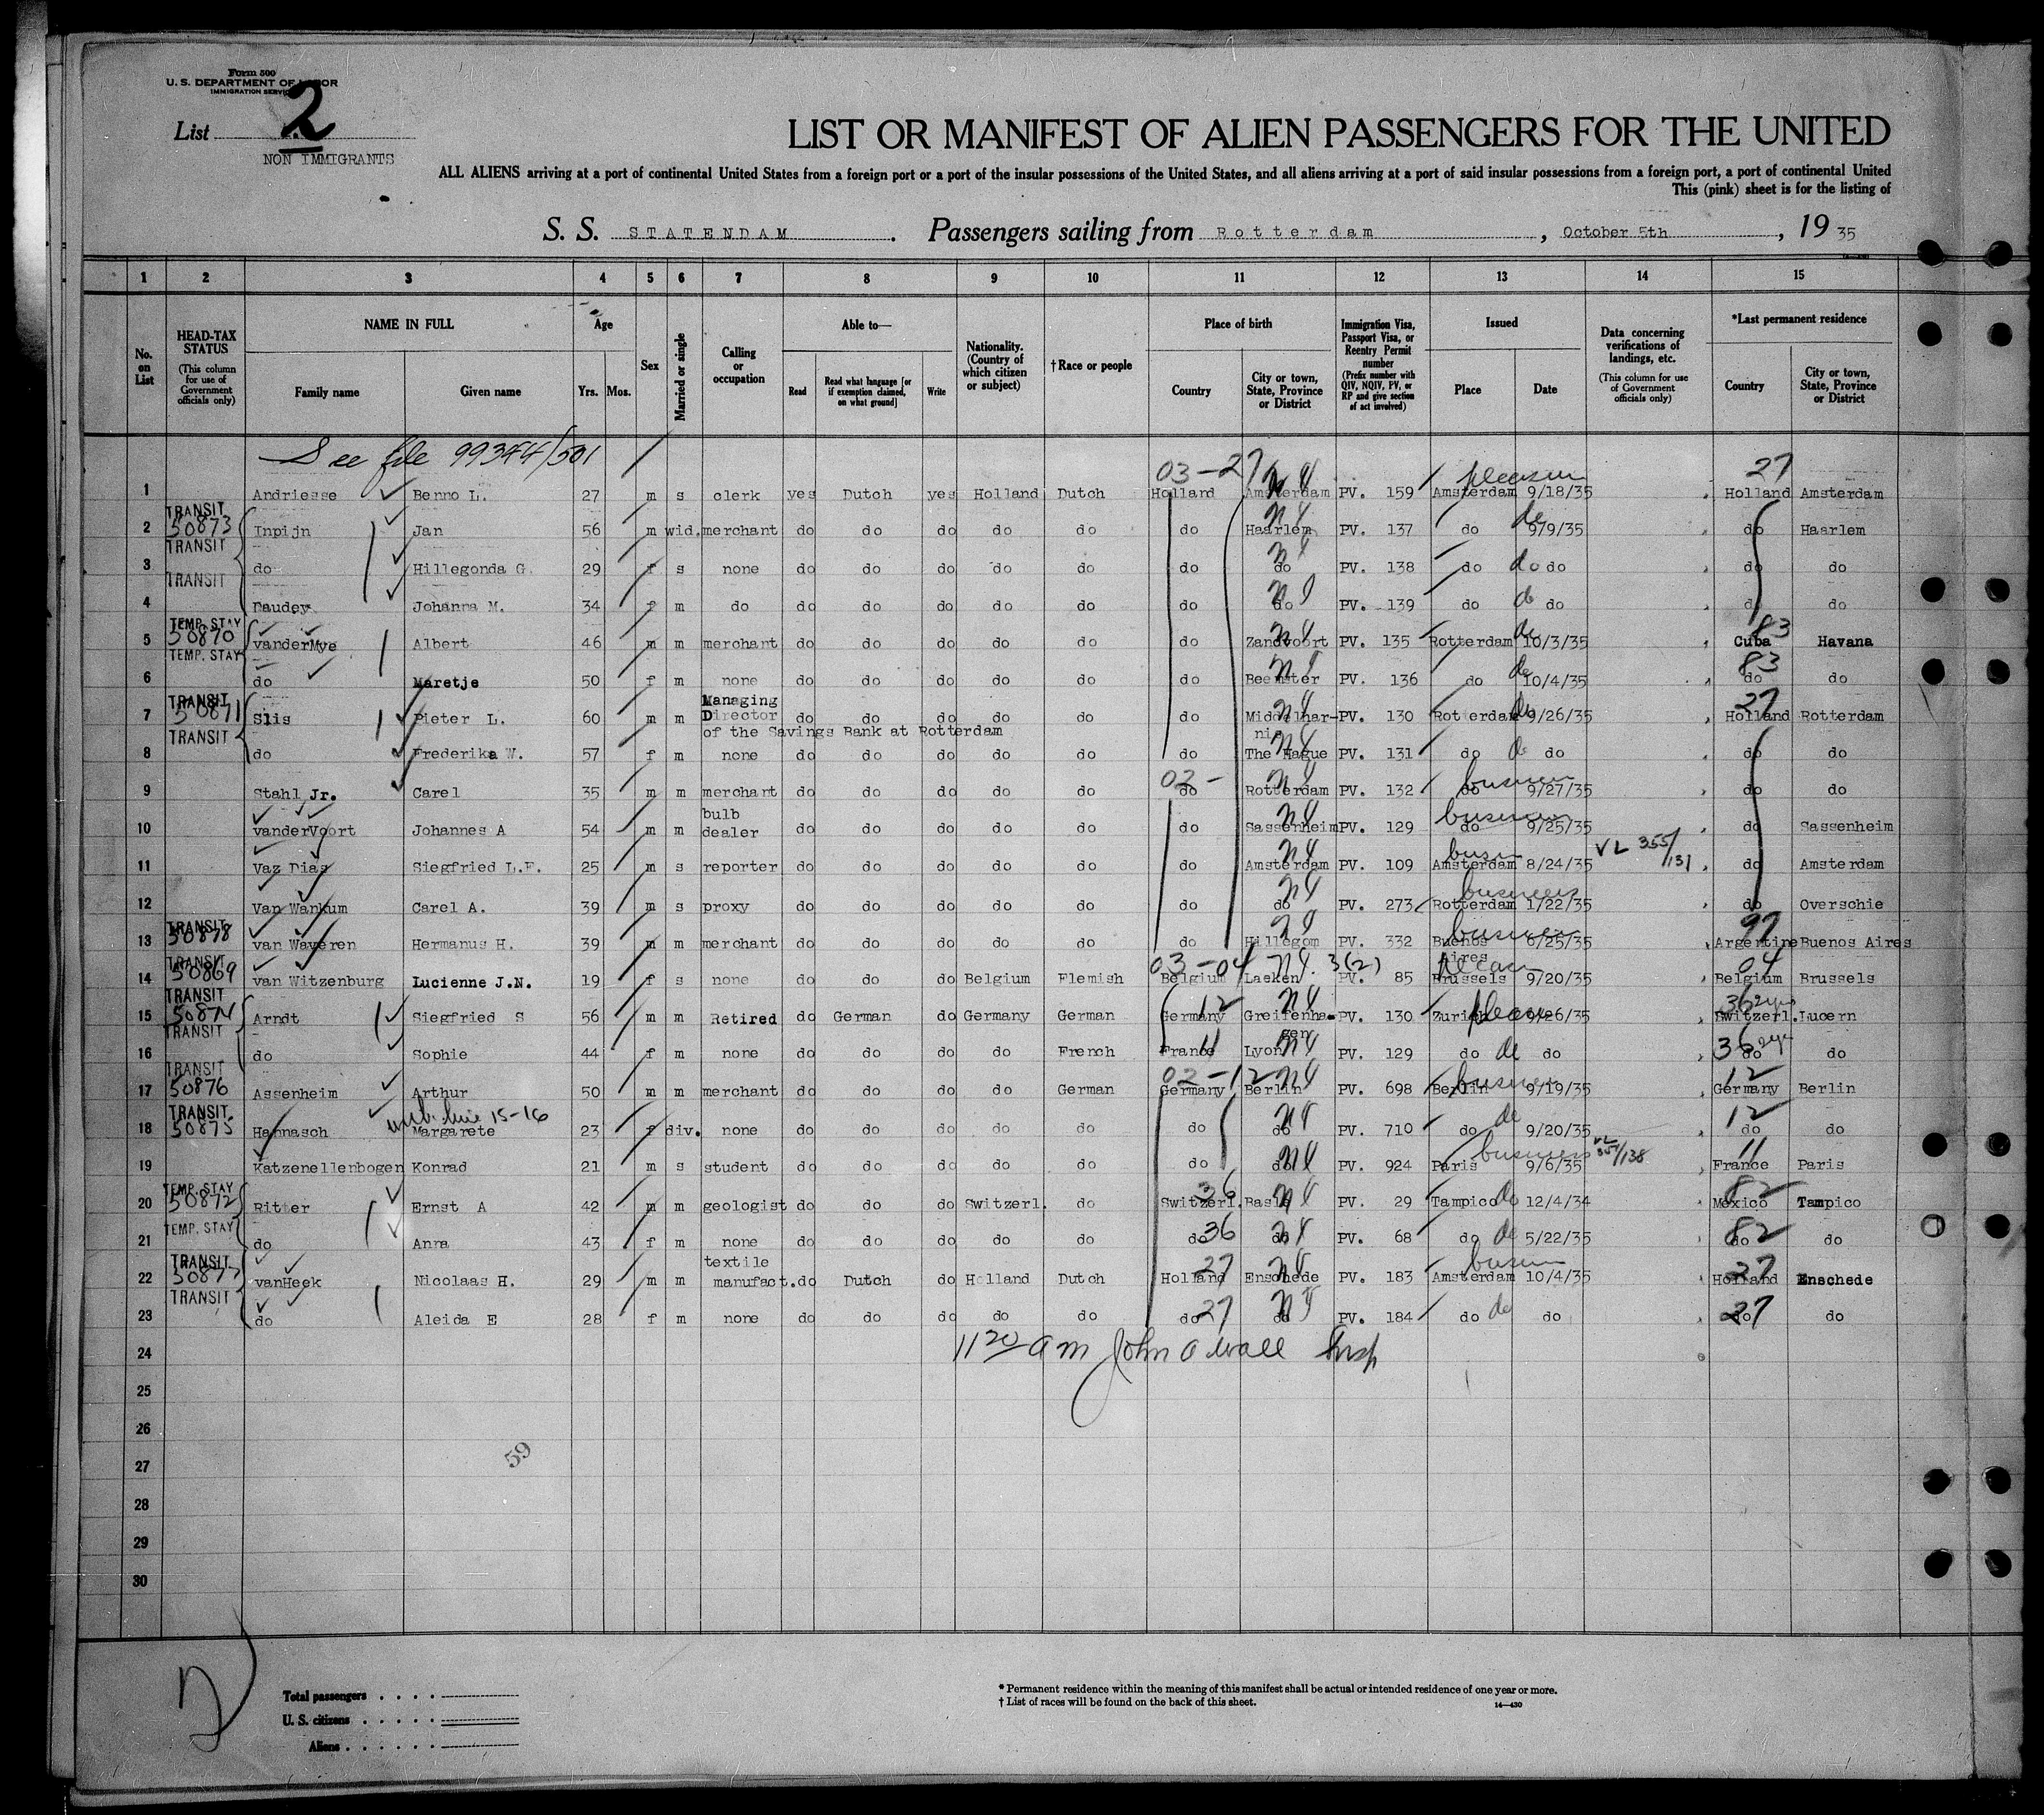 Form 500
U. S. DEPARTMENT OF LABOR
IMMIGRATION SERVICE
List 2
NON IMMIGRANTS
LIST OR MANIFEST OF ALIEN PASSENGERS FOR THE UNITED
ALL ALIENS arriving at a port of continental United States from a foreign port or a port of the insular possessions of the United States, and all aliens arriving at a port of said insular possessions from a foreign port, a port of continental United
This (pink) sheet is for the listing of
S. S. STATENDAM . Passengers sailing from Rotterdam , October 5th , 19 35
1 2 3 4 5 6 7 8 9 10 11 12 13 14 15
No. on List
HEAD-TAX STATUS (This column for use of Government officials only)
NAME IN FULL Family name Given name
Age Yrs. Mos.
Sex
Married or single
Calling or occupation
Able to— Read Read what language [or if exemption claimed, on what ground] Write
Nationality. (Country of which citizen or subject)
†Race or people
Place of birth Country City or town, State, Province or District
Immigration Visa, Passport Visa, or Reentry Permit number (Prefix number with QIV, NQIV, PV, or RP and give section of act involved)
Issued Place Date
Data concerning verifications of landings, etc. (This column for use of Government officials only)
*Last permanent residence Country City or town, State, Province or District
See file 99344/501
03-27 NY pleasure 27
1 Andriesse Benno L. 27 m s clerk yes Dutch yes Holland Dutch Holland Amsterdam PV. 159 Amsterdam 9/18/35 Holland Amsterdam
TRANSIT 50873 NY do
2 Inpijn Jan 56 m wid. merchant do do do do do do Haarlem PV. 137 do 9/9/35 do Haarlem
TRANSIT NY
3 do Hillegonda G. 29 f s none do do do do do do do PV. 138 do do do do do
TRANSIT NY
4 Daudey Johanna M. 34 f m do do do do do do do do PV. 139 do do do do do
TEMP. STAY 50870 NY do 83
5 vanderMye Albert 46 m m merchant do do do do do do Zandvoort PV. 135 Rotterdam 10/3/35 Cuba Havana
TEMP. STAY NY do 83
6 do Maretje 50 f m none do do do do do do Beemster PV. 136 do 10/4/35 do do
TRANSIT 50871 NY do 27
7 Slis Pieter L. 60 m m Managing Director do do do do do do Middelhar- PV. 130 Rotterdam 9/26/35 Holland Rotterdam
of the Savings Bank at Rotterdam nis
TRANSIT NY
8 do Frederika W. 57 f m none do do do do do do The Hague PV. 131 do do do do do
02- NY business
9 Stahl Jr. Carel 35 m m merchant do do do do do do Rotterdam PV. 132 do 9/27/35 do do
NY business
10 vanderVoort Johannes A 54 m m bulb dealer do do do do do do Sassenheim PV. 129 do 9/25/35 do Sassenheim
NY VL 355/131
11 Vaz Dias Siegfried L.F. 25 m s reporter do do do do do do Amsterdam PV. 109 Amsterdam 8/24/35 do Amsterdam
NY business
12 Van Wankum Carel A. 39 m s proxy do do do do do do do PV. 273 Rotterdam 1/22/35 do Overschie
TRANSIT 50878 NY business 97
13 van Waveren Hermanus H. 39 m m merchant do do do do do do Hillegom PV. 332 Buenos Aires 6/25/35 Argentine Buenos Aires
TRANSIT 50869 03-04 NY. 3(2) 04
14 van Witzenburg Lucienne J.N. 19 f s none do do do Belgium Flemish Belgium Laeken PV. 85 Brussels 9/20/35 Belgium Brussels
TRANSIT 50874 12 NY 36 2yrs
15 Arndt Siegfried S 56 m m Retired do German do Germany German Germany Greifenha- PV. 130 Zurich 9/26/35 Switzerl. Lucern
gen
TRANSIT 11 NY 36 2yr
16 do Sophie 44 f m none do do do do French France Lyon PV. 129 do do do do do
TRANSIT 50876 02-12 NY business 12
17 Assenheim Arthur 50 m m merchant do do do do German Germany Berlin PV. 698 Berlin 9/19/35 Germany Berlin
TRANSIT 50875 line 15-16 NY do 12
18 Hannasch Margarete 23 f div. none do do do do do do do PV. 710 do 9/20/35 do do
NY business VL 351/138 11
19 Katzenellenbogen Konrad 21 m s student do do do do do do do PV. 924 Paris 9/6/35 France Paris
TEMP. STAY 50872 36 NY do 82
20 Ritter Ernst A 42 m m geologist do do do Switzerl. do Switzerl. Basle PV. 29 Tampico 12/4/34 Mexico Tampico
TEMP. STAY 36 NY 82
21 do Anna 43 f m none do do do do do do do PV. 68 do do 5/22/35 do do
TRANSIT 50877 27 NY 27
22 vanHeek Nicolaas H. 29 m m textile manufact. do Dutch do Holland Dutch Holland Enschede PV. 183 Amsterdam 10/4/35 Holland Enschede
TRANSIT 27 NY 27
23 do Aleida E 28 f m none do do do do do do do PV. 184 do do do do do
24 11 20 am John A Wall Insp
25
26
27 59
28
29
30
Total passengers
U. S. citizens
Aliens
* Permanent residence within the meaning of this manifest shall be actual or intended residence of one year or more.
† List of races will be found on the back of this sheet.
14—430